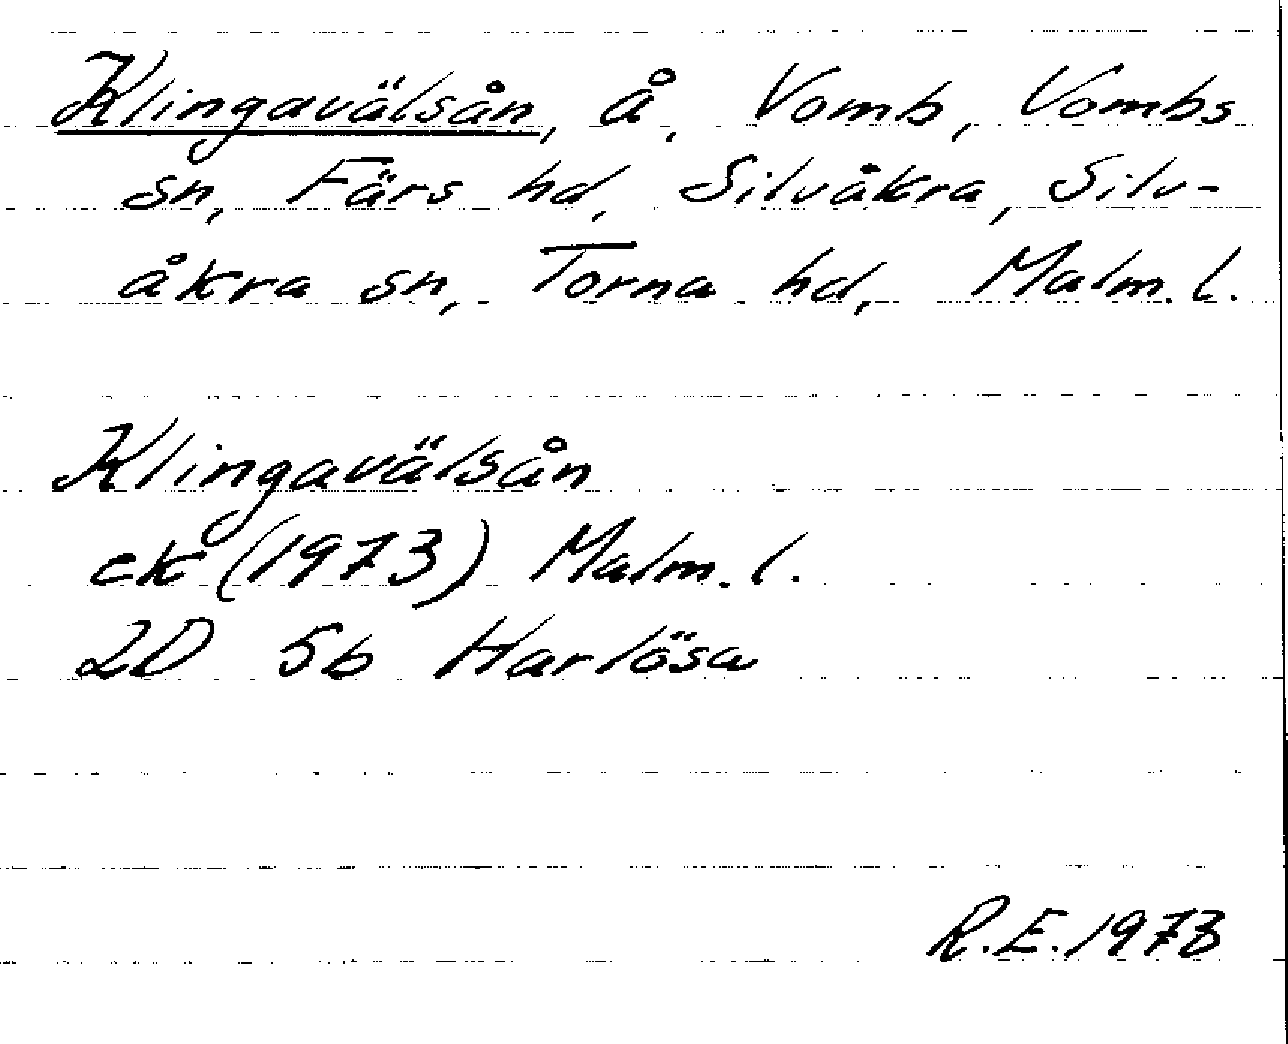 Klingavälsån, å, Vomb, Vombs
sn, Färs hd, Silvåkra, Silv-
åkra sn, Torna hd, Malm. l.
Klingavälsån
ek (1973) Malm. l.
2D 5b Harlösa
R.E. 1973